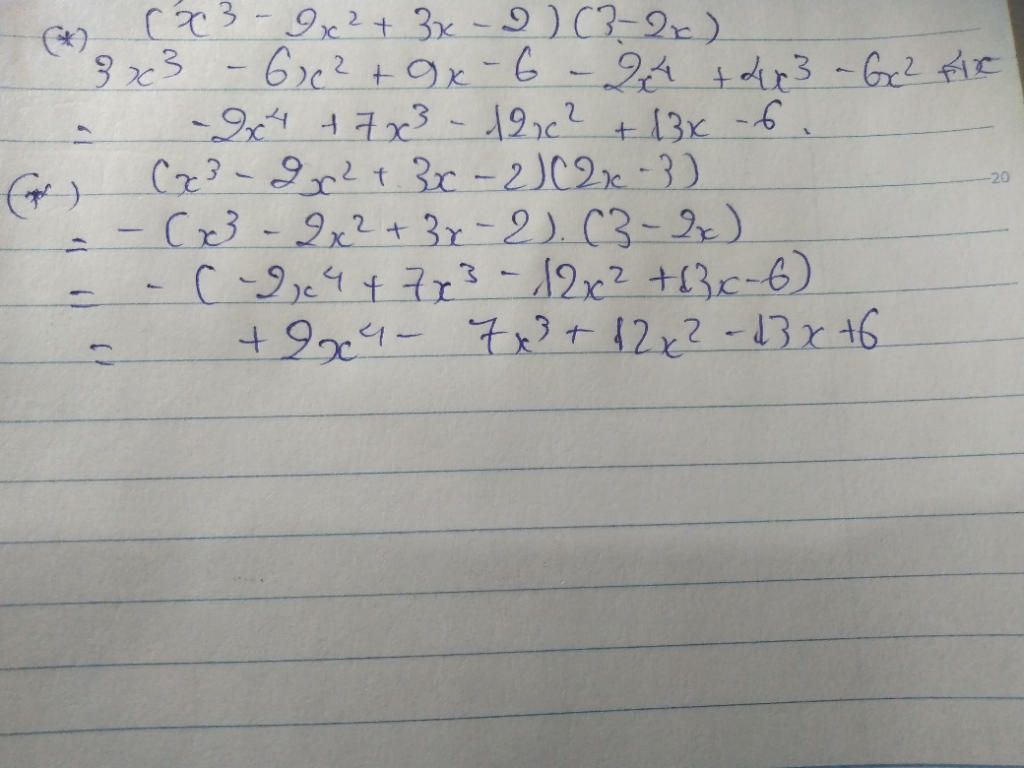 (*) (x³ - 2x² + 3x - 2)(3 - 2x)
3x³ - 6x² + 9x - 6 - 2x⁴ + 4x³ - 6x² + 4x
= -2x⁴ + 7x³ - 12x² + 13x - 6.
(*) (x³ - 2x² + 3x - 2)(2x - 3)
= - (x³ - 2x² + 3x - 2).(3 - 2x)
= - (-2x⁴ + 7x³ - 12x² + 13x - 6)
= + 2x⁴ - 7x³ + 12x² - 13x + 6
20